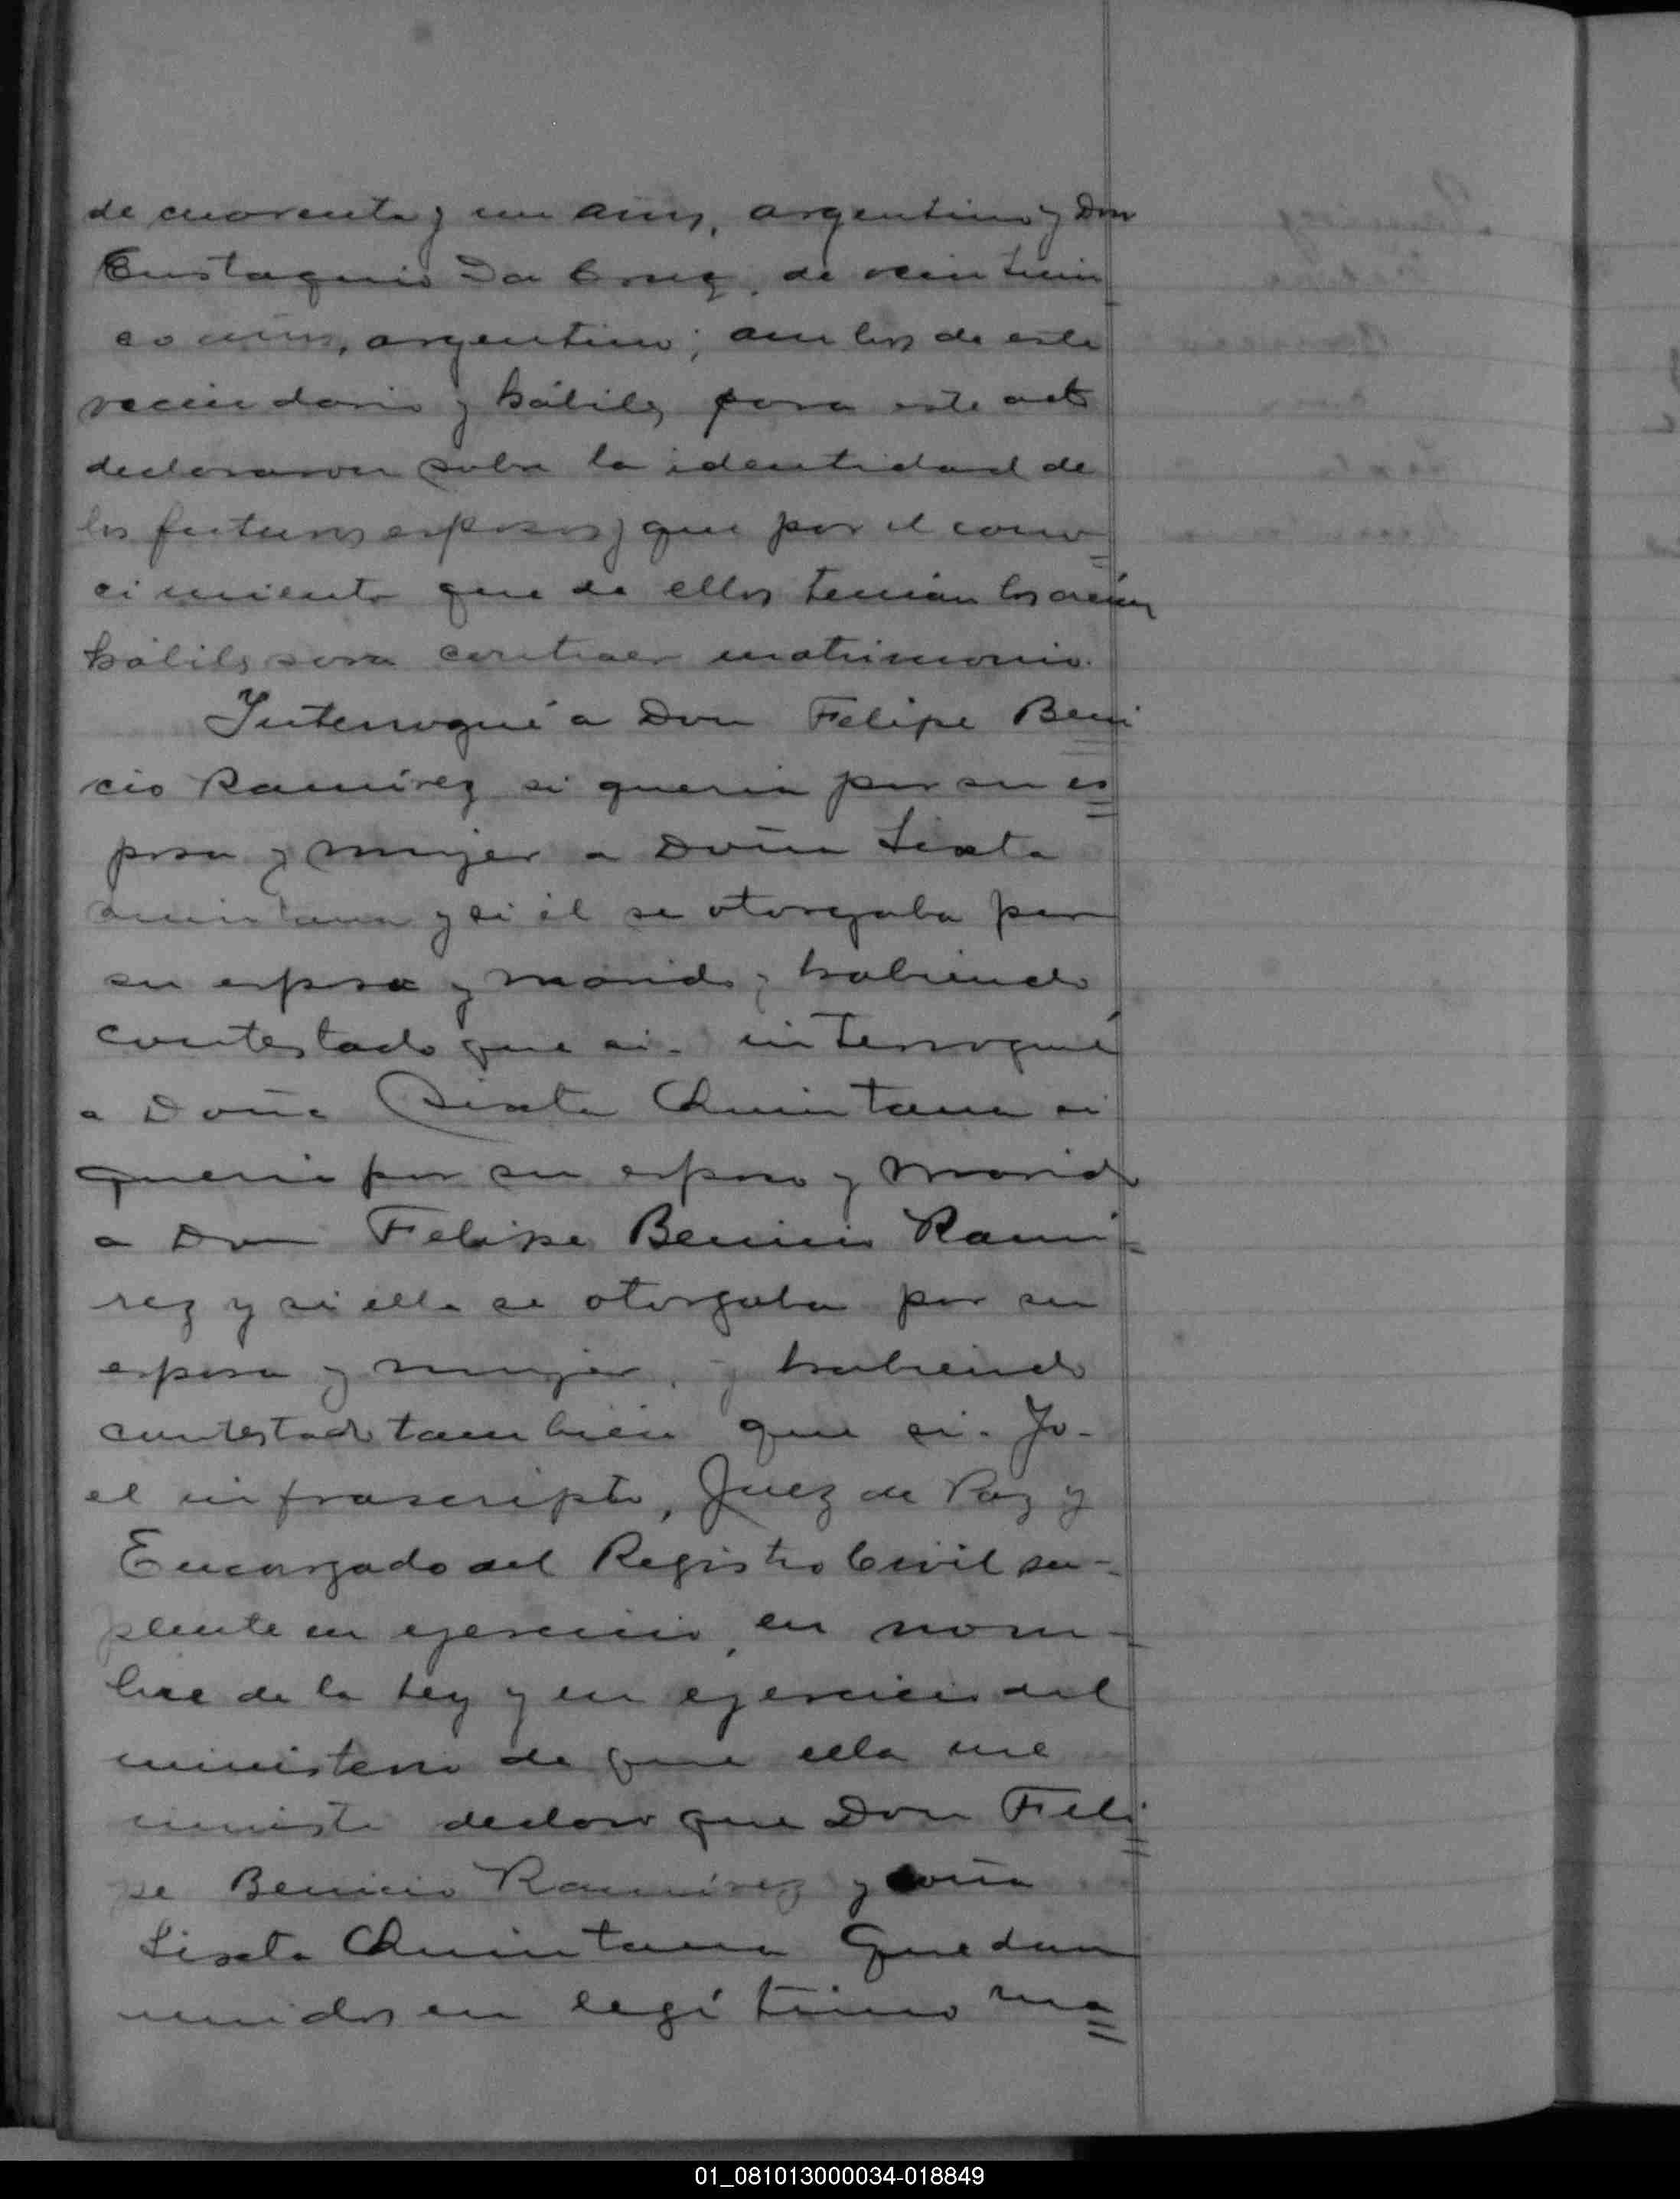 de cuarenta y un años, argentino y Don
Eustaquio Da Cruz, de veinticin
co años, argentino; ambos de este
vecindario y hábiles para este acto
declararon sobre la identidad de
los futuros esposos y que por el cono=
cimiento que de ellos tenían los creían
hábiles para contraer matrimonio.
Interrogué a Don Felipe Beni
cio Ramírez si quería por su es=
posa y mujer a Doña Sixta
Quintana y si él se otorgaba por
su esposo y marido, habiendo
contestado que si - interrogué
a Doña Sixta Quintana si
quería por su esposo y marido
a Don Felipe Benicio Ramí=
rez y si ella se otorgaba por su
esposa y mujer, y habiendo
contestado tambien que si. Yo -
el infrascripto, Juez de Paz y
Encargado del Registro Civil su-
plente en ejercicio, en nom-
bre de la ley y en ejercicio del
ministerio de que ella me
inviste declaro que Don Feli=
pe Benicio Ramírez y Doña
Sixta Quintana quedan
unidos en legítimo ma=
01_081013000034-018849